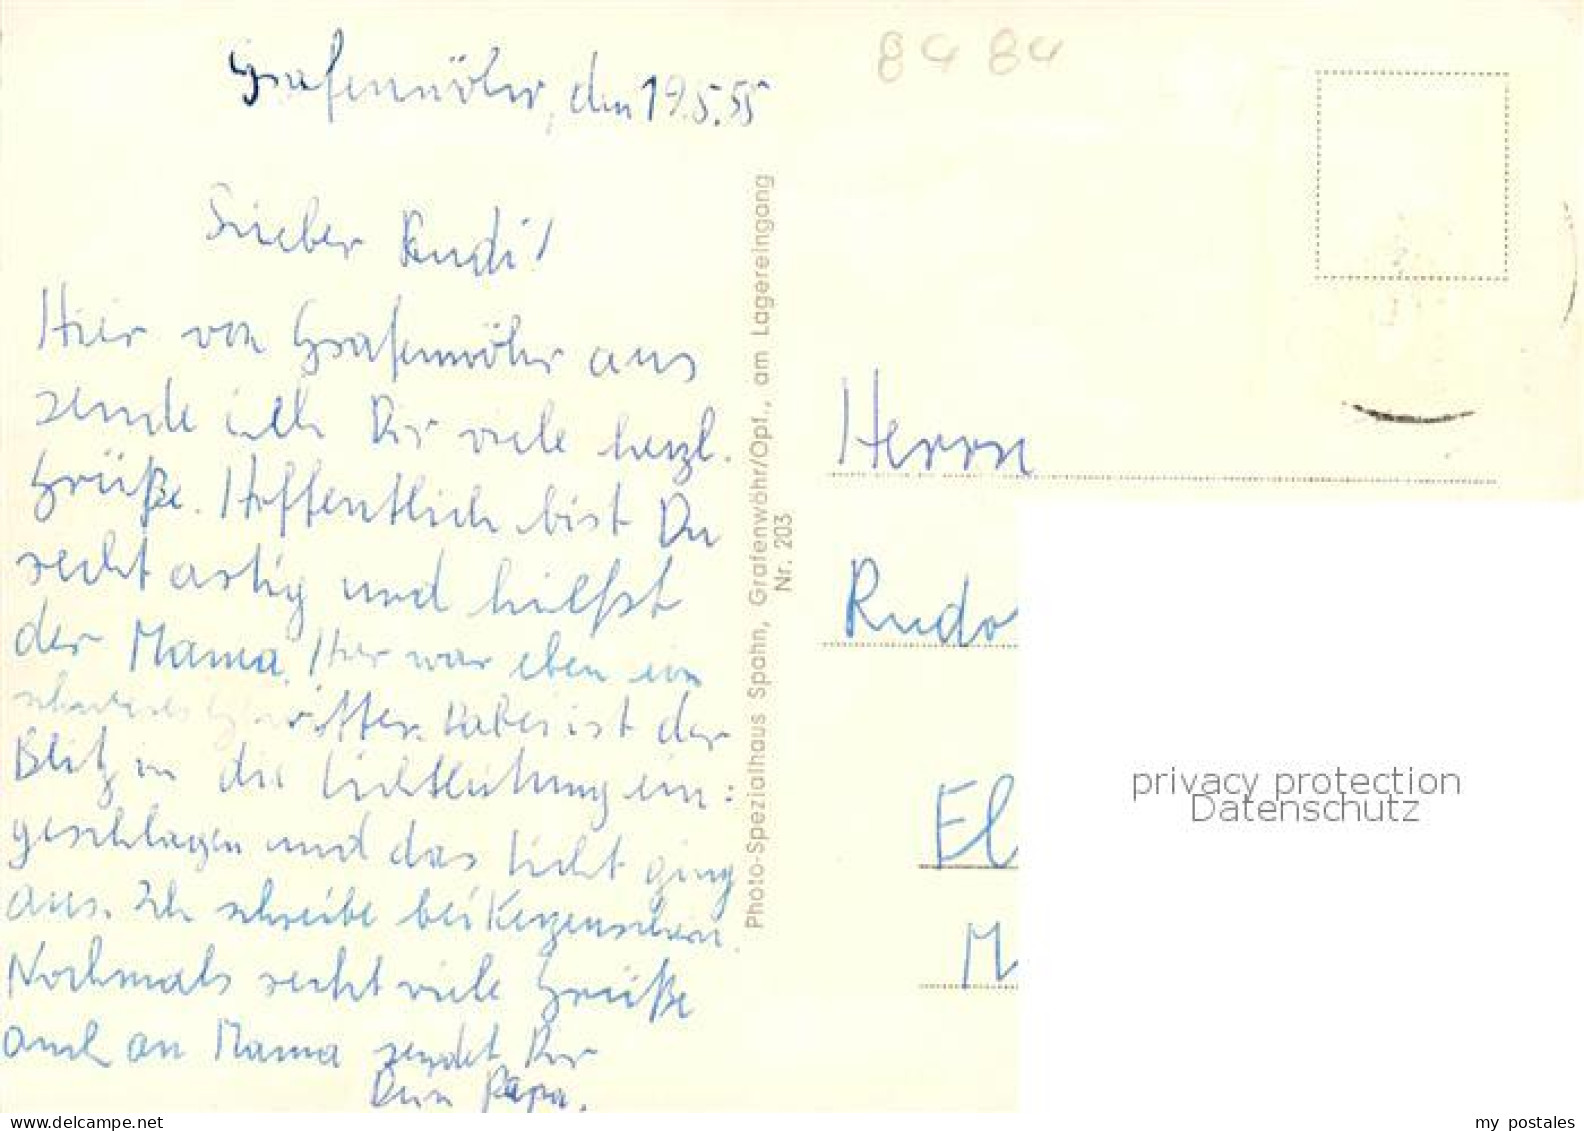 Grafenwöhr, den 19.5.55
Lieber Rudi!
Hier von Grafenwöhr aus
sende ich Dir viele herzl.
Grüße. Hoffentlich bist Du
recht artig und hilfst
der Mama. Hier war eben ein
schweres Gewitter. Dabei ist der
Blitz in die Lichtleitung ein:
geschlagen und das Licht ging
aus. Ich schreibe bei Kerzenschein.
Nochmals recht viele Grüße
auch an Mama sendet Dir
Dein Papa.
Photo-Spezialhaus Spahn, Grafenwöhr/Opf., am Lagereingang
Nr. 203
84 84
Herrn
Rudo
El
M
privacy protection
Datenschutz
my postales